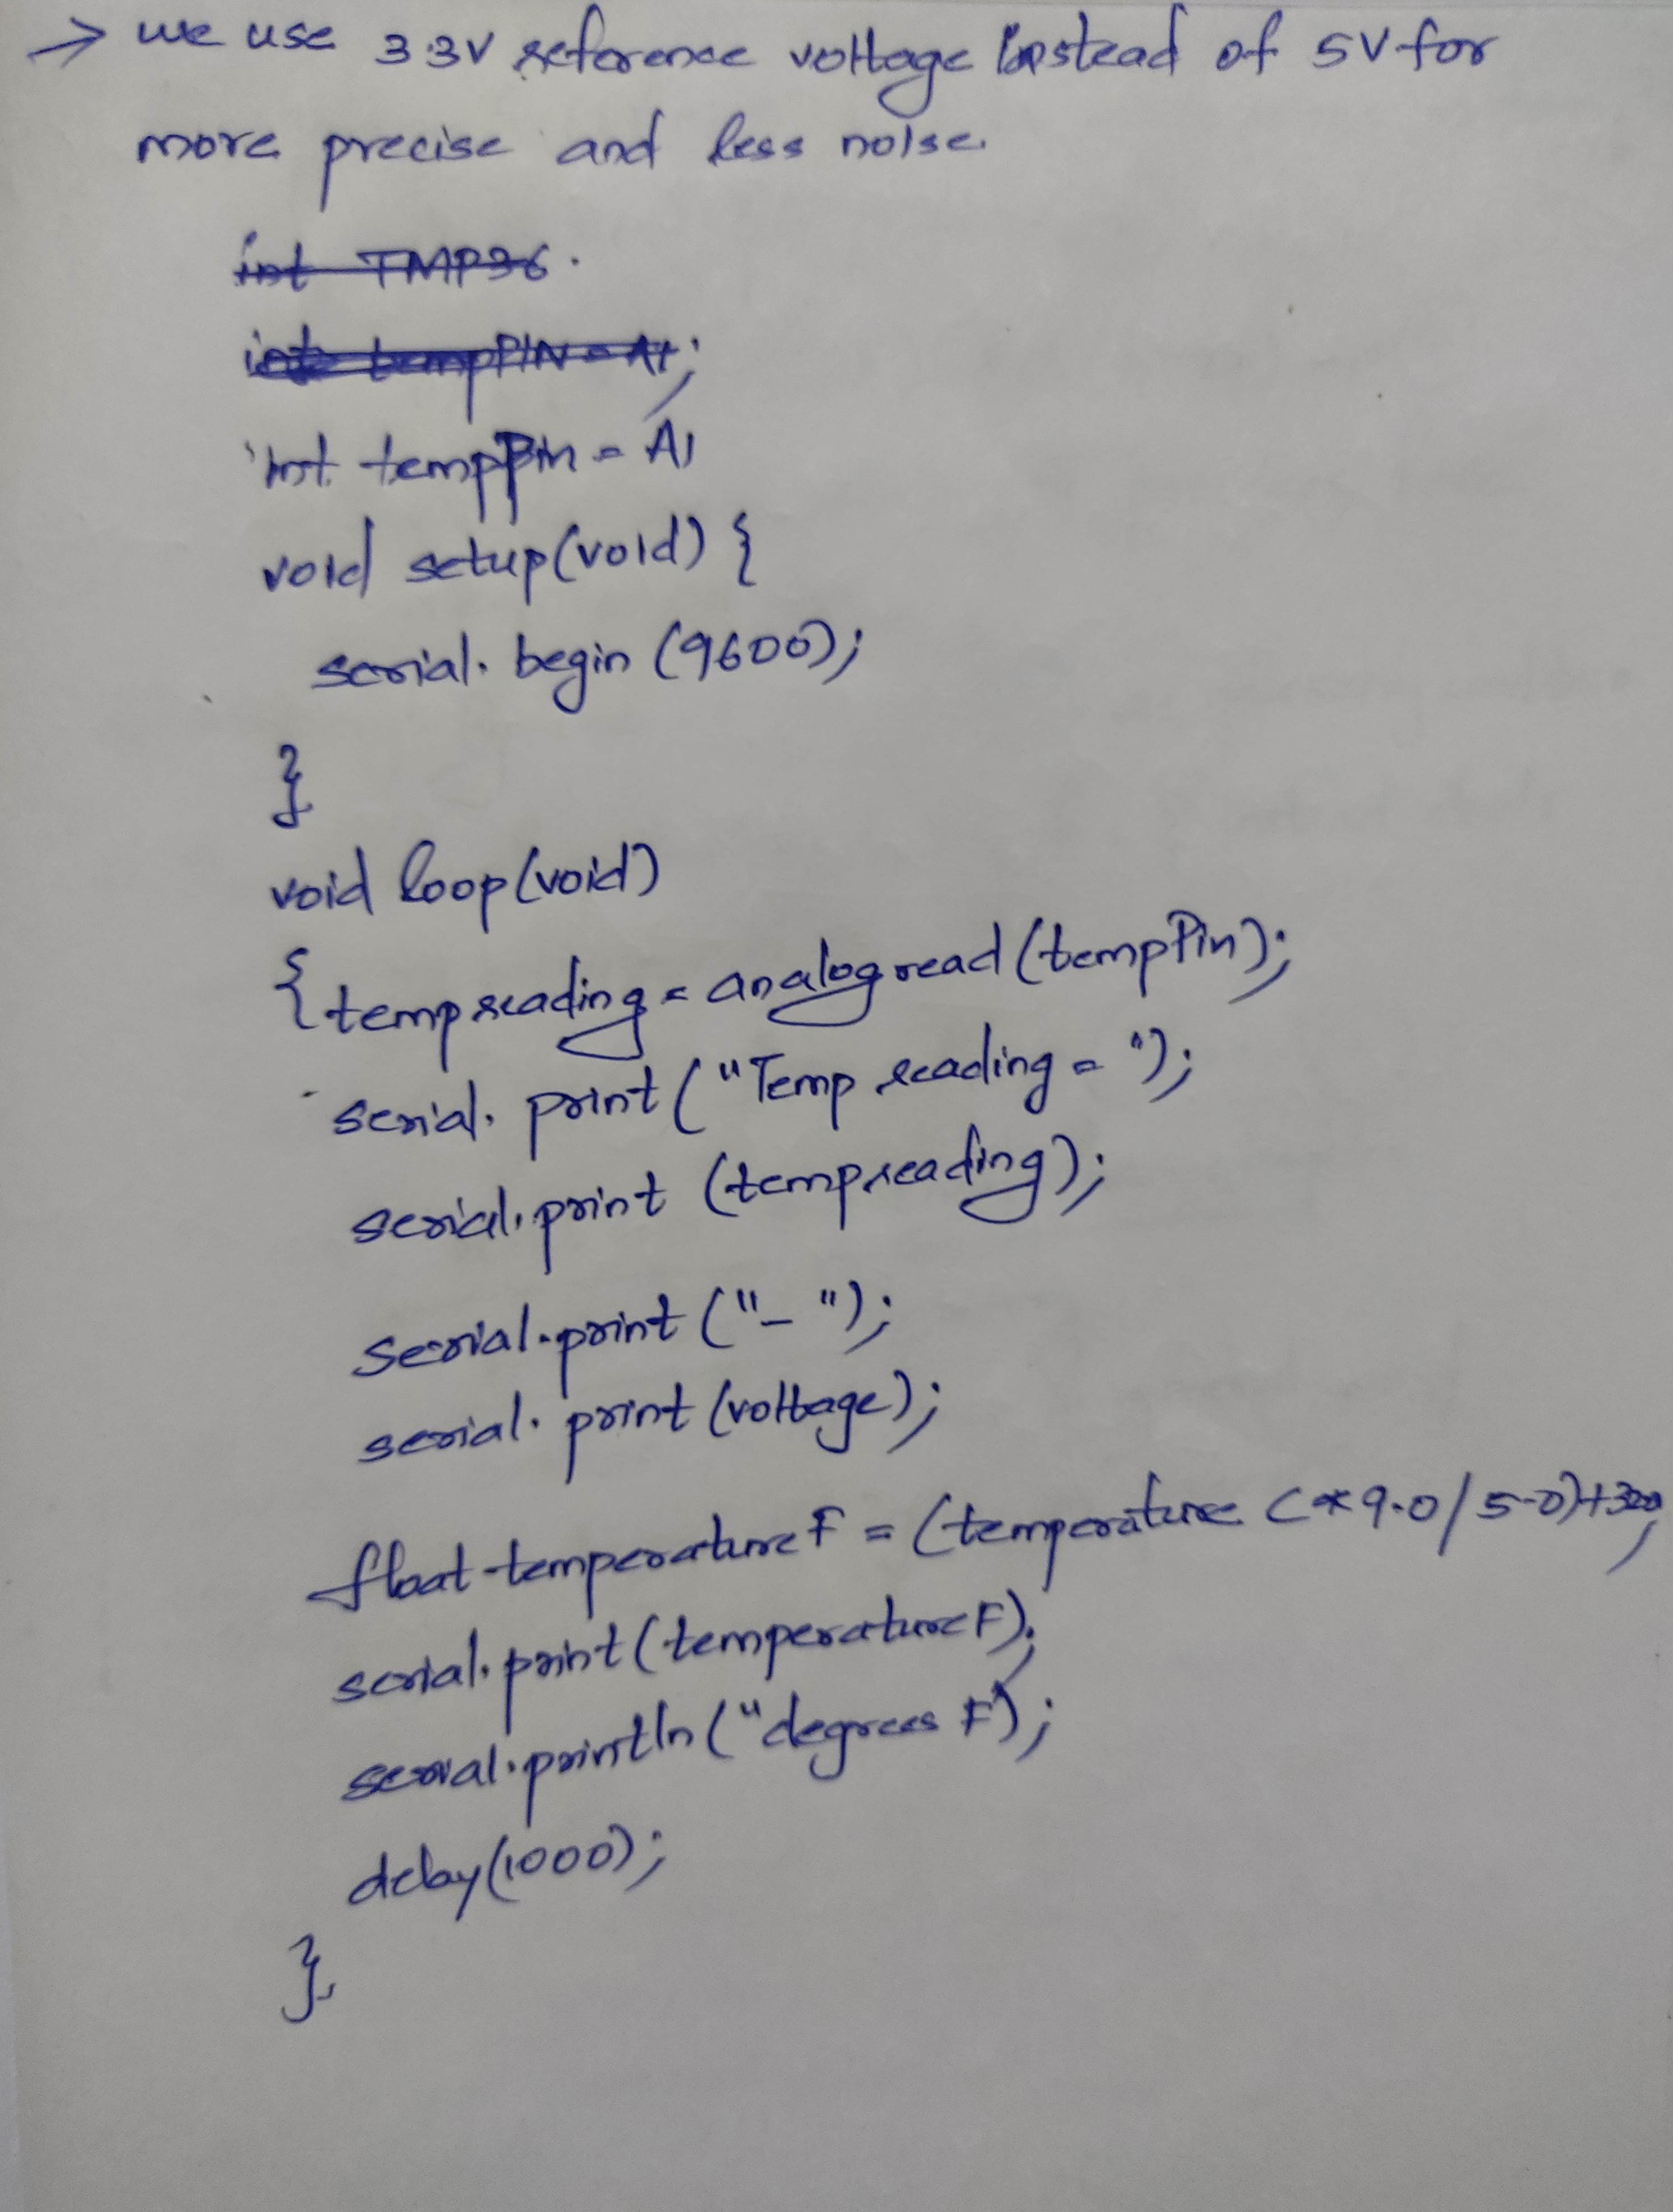 → we use 3.3V reference voltage instead of 5V for
more precise and less noise.
int TMP36.
int tempPIN = A1;
int tempPin = A1
void setup(void) {
serial. begin (9600);
}
void loop(void)
{ tempreading = analogread (tempPin);
serial. print ("Temp reading = ");
serial. print (tempreading);
serial.print ("_ ");
serial. print (voltage);
float temperatureF = (temperature C * 9.0/5.0)+32.0;
serial.print (temperatureF);
serial.println ("degrees F");
delay(1000);
}